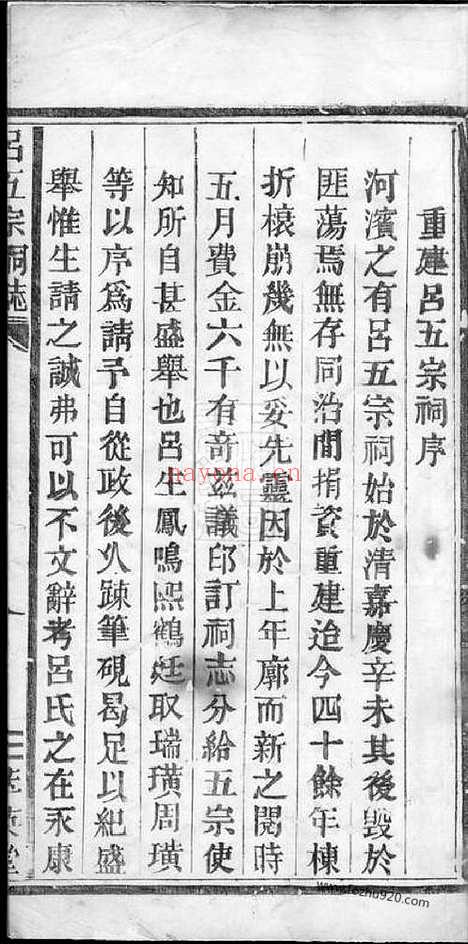 重建呂五宗祠序
河濱之有呂五宗祠始於清嘉慶辛未其後毀於
匪蕩焉無存同治間捐資重建迨今四十餘年棟
折榱崩幾無以妥先靈因於上年廓而新之閱時
五月費金六千有奇並議印訂祠志分給五宗使
知所自甚盛舉也呂生鳳鳴熙鶴廷取瑞璜周璜
等以序爲請予自從政後久踈筆硯曷足以紀盛
舉惟生請之誠弗可以不文辭考呂氏之在永康
呂五宗祠誌
nayona.cn